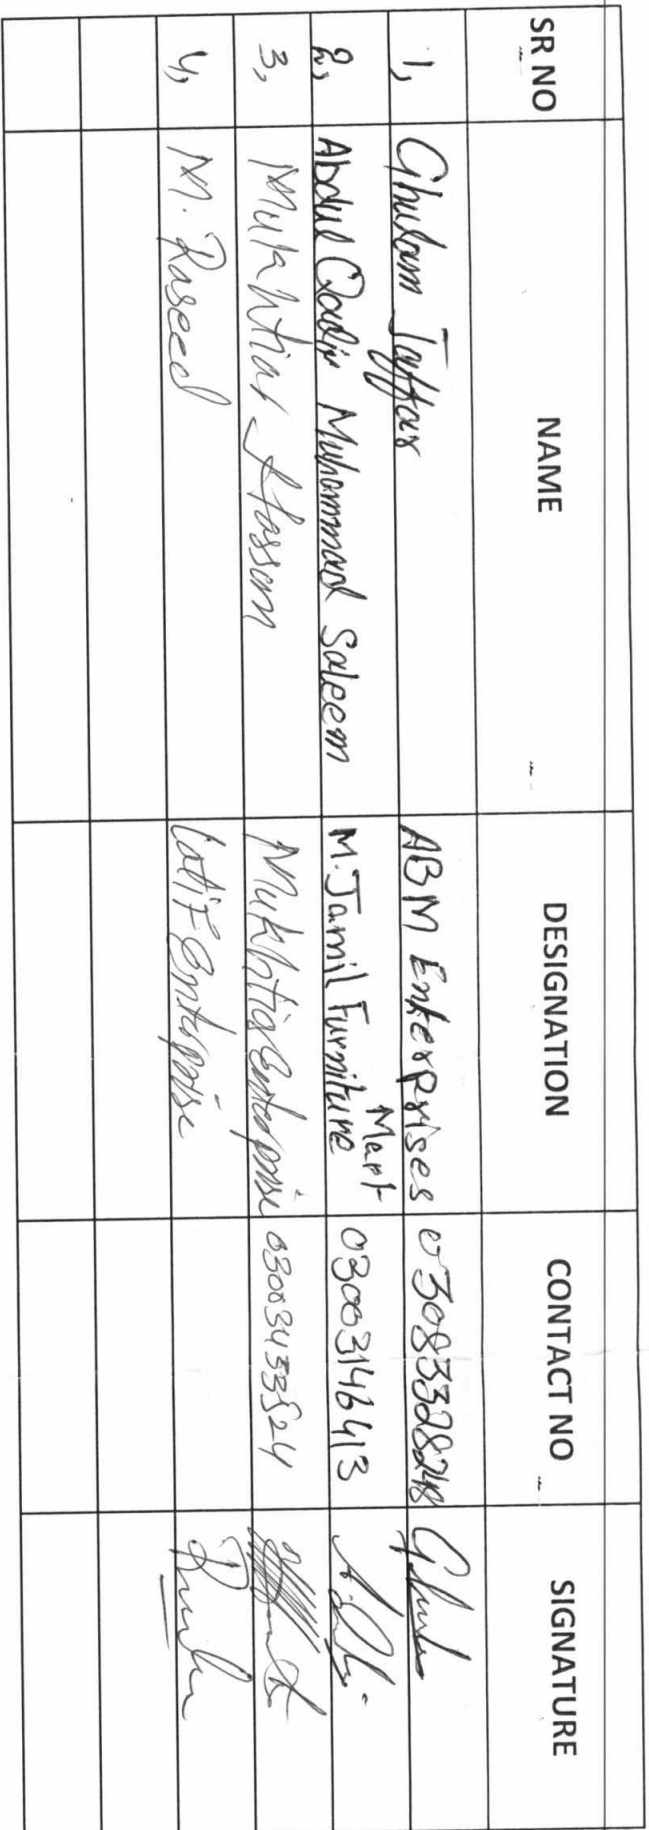 SR NO NAME DESIGNATION CONTACT NO SIGNATURE
1, Ghulam Jaffar ABM Enterprises
2, Abdul Qadir Muhammad Saleem M. Jamil Furniture Mart 03003146413
3, Hassan Enterprise 03003433524
4, M. Raseed Latif Enterprise